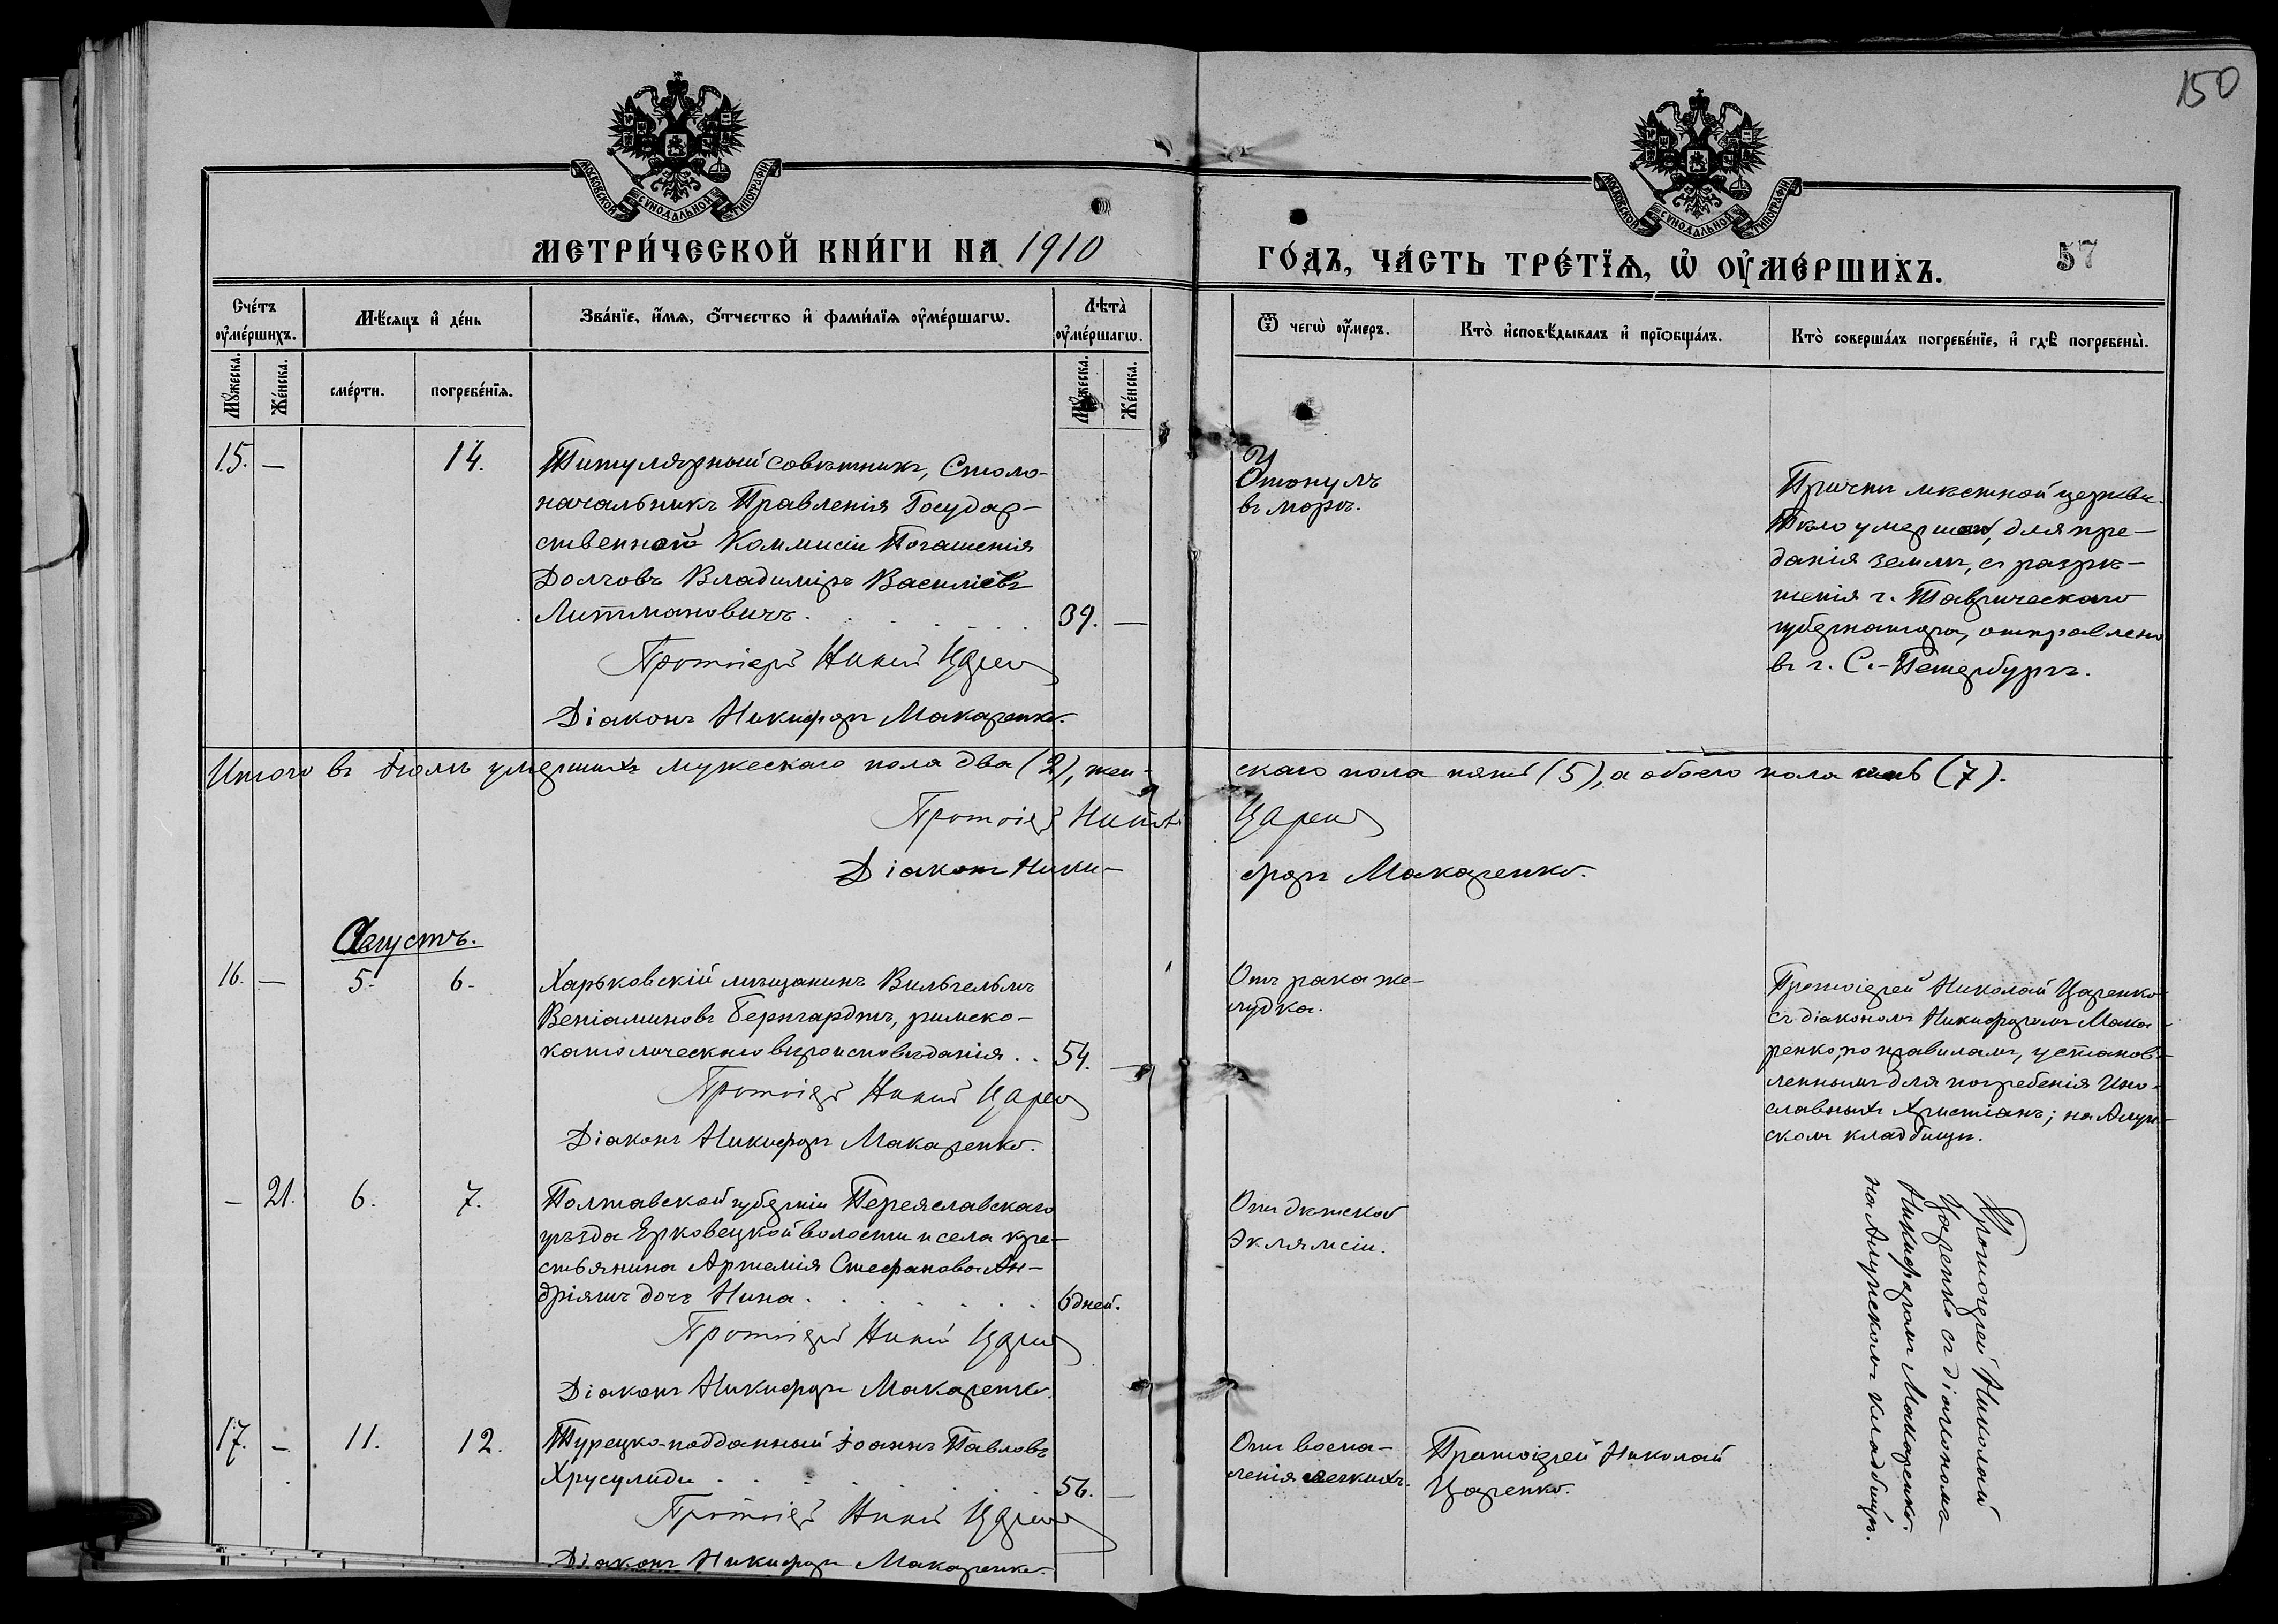 150
МОСКОВСКОЙ СѴНОДАЛЬНОЙ ТИПОГРАФІИ
МОСКОВСКОЙ СѴНОДАЛЬНОЙ ТИПОГРАФІИ
МЕТРИ́ЧЕСКОЙ КНИ́ГИ НА 1910
ГО́ДЪ, ЧА́СТЬ ТРЕ́ТЇѦ, Ѡ҆ ОУ҆МЕ́РШИХЪ.
57
Сче́тъ оу҆ме́ршихъ.
Мѣ́сяцъ и҆ де́нь
Зва́нїе, и҆́мѧ, ѻ҆́тчество и҆ фамилїѧ оу҆ме́ршагѡ.
Лѣта̀ оу҆ме́ршагѡ.
Ѿ чегѡ̀ оу҆́меръ.
Кто̀ и҆сповѣ́дывалъ и҆ прїобща́лъ.
Кто̀ соверша́лъ погребе́нїе, и҆ гдѣ̀ погребены̀.
Мꙋ́жеска.
Же́нска.
сме́рти.
погребе́нїѧ.
Мꙋ́жеска.
Же́нска.
15. — 14.
Титулярный совѣтникъ, Столо-
начальникъ Правленія Государ-
ственной Коммисіи Погашенія
Долговъ Владиміръ Василіевъ
Литтмановичъ. 39. —
Протоіерей Никол Царен
Діаконъ Никифоръ Макаренко.
Утонулъ
въ морѣ.
Причтъ мѣстной церкви.
Тѣло умершаго, для пре-
данія землѣ, съ разрѣ-
шенія г. Таврическаго
губернатора, отправлено
въ г. С.-Петербургъ.
Итого въ Іюлѣ умершихъ мужескаго пола два (2), жен-
скаго пола пять (5), а обоего пола семь (7).
Протоіерей Никол Царен
Діаконъ Ники-
форъ Макаренко.
Августъ.
16. — 5. 6.
Харьковскій мѣщанинъ Вильгельмъ
Веніаминовъ Бернгардтъ, римско-
католическаго вѣроисповѣданія . . 54. —
Протоіерей Никол Царен
Діаконъ Никифоръ Макаренко.
Отъ рака же-
лудка.
Протоіерей Николай Царенко
съ діакономъ Никифоромъ Мака-
ренко, по правиламъ, установ-
леннымъ для погребенія Ино-
славныхъ Христіанъ; на Алуш-
скомъ кладбищѣ.
— 21. 6. 7.
Полтавской губерніи Переяславскаго
уѣзда Ерковецкой волости и села кре-
стьянина Артемія Стефанова Ан-
дріяшъ дочь Нина 6 дней.
Протоіерей Никол Царен
Діаконъ Никифоръ Макаренко.
Отъ дѣтской
Эклямсіи.
Протоіерей Николай
Царенко съ діакономъ
Никифоромъ Макаренко.
на Алушскомъ кладбищѣ.
17. — 11. 12.
Турецко-подданный Іоаннъ Павловъ
Хрусулиди 56. —
Протоіерей Никол Царен
Діаконъ Никифоръ Макаренко.
Отъ воспа-
ленія легкихъ.
Протоіерей Николай
Царенко.